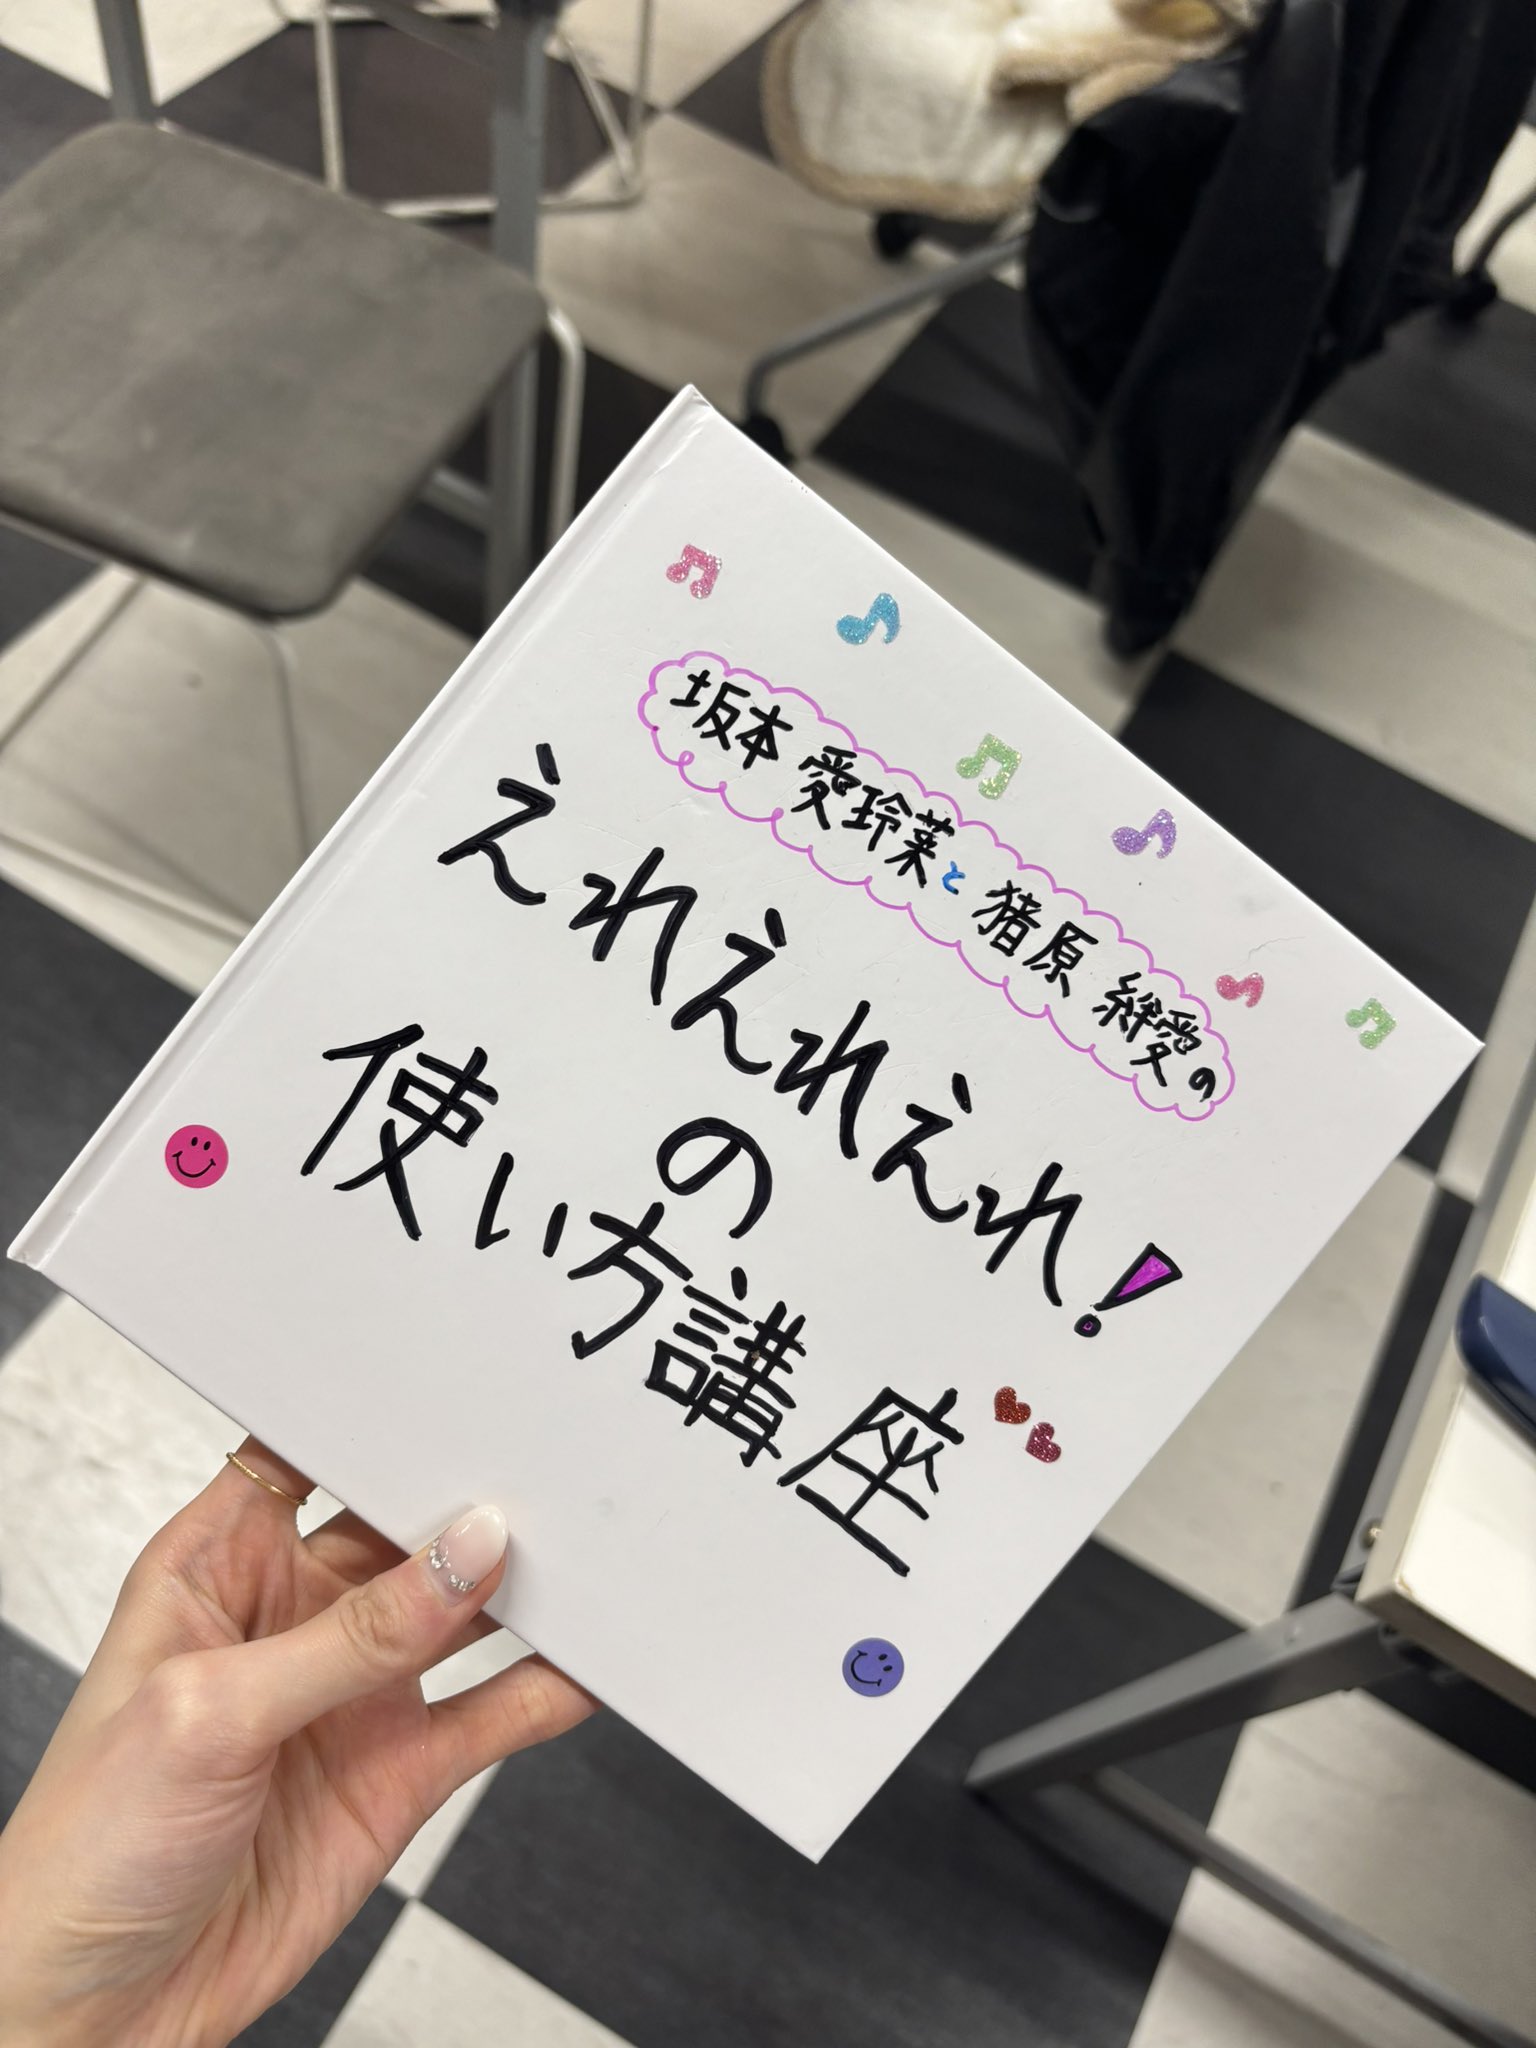 坂本 愛玲菜と猪原 絆愛の
えれえれえれ!
の
使い方講座